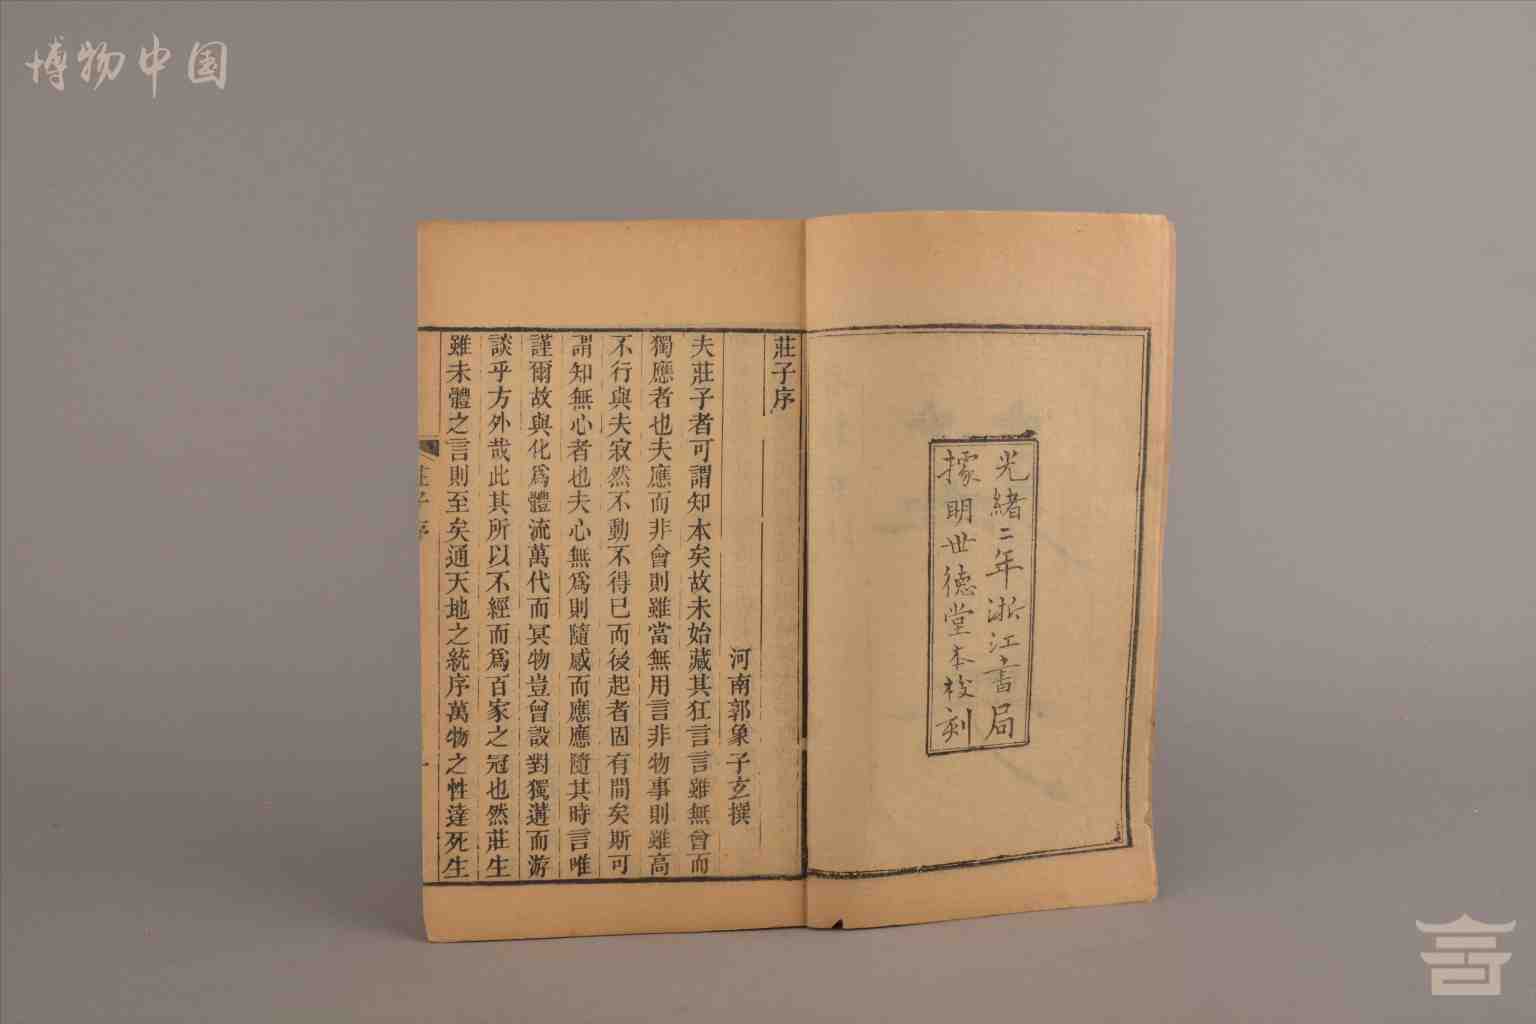 博物中国
光緒二年浙江書局
據明世德堂本校刻
莊子序
河南郭象子玄撰
夫莊子者可謂知本矣故未始藏其狂言言雖無會而
獨應者也夫應而非會則雖當無用言非物事則雖高
不行與夫寂然不動不得已而後起者固有間矣斯可
謂知無心者也夫心無爲則隨感而應應隨其時言唯
謹爾故與化爲體流萬代而冥物豈曾設對獨遘而游
談乎方外哉此其所以不經而爲百家之冠也然莊生
雖未體之言則至矣通天地之統序萬物之性達死生
莊子序
一